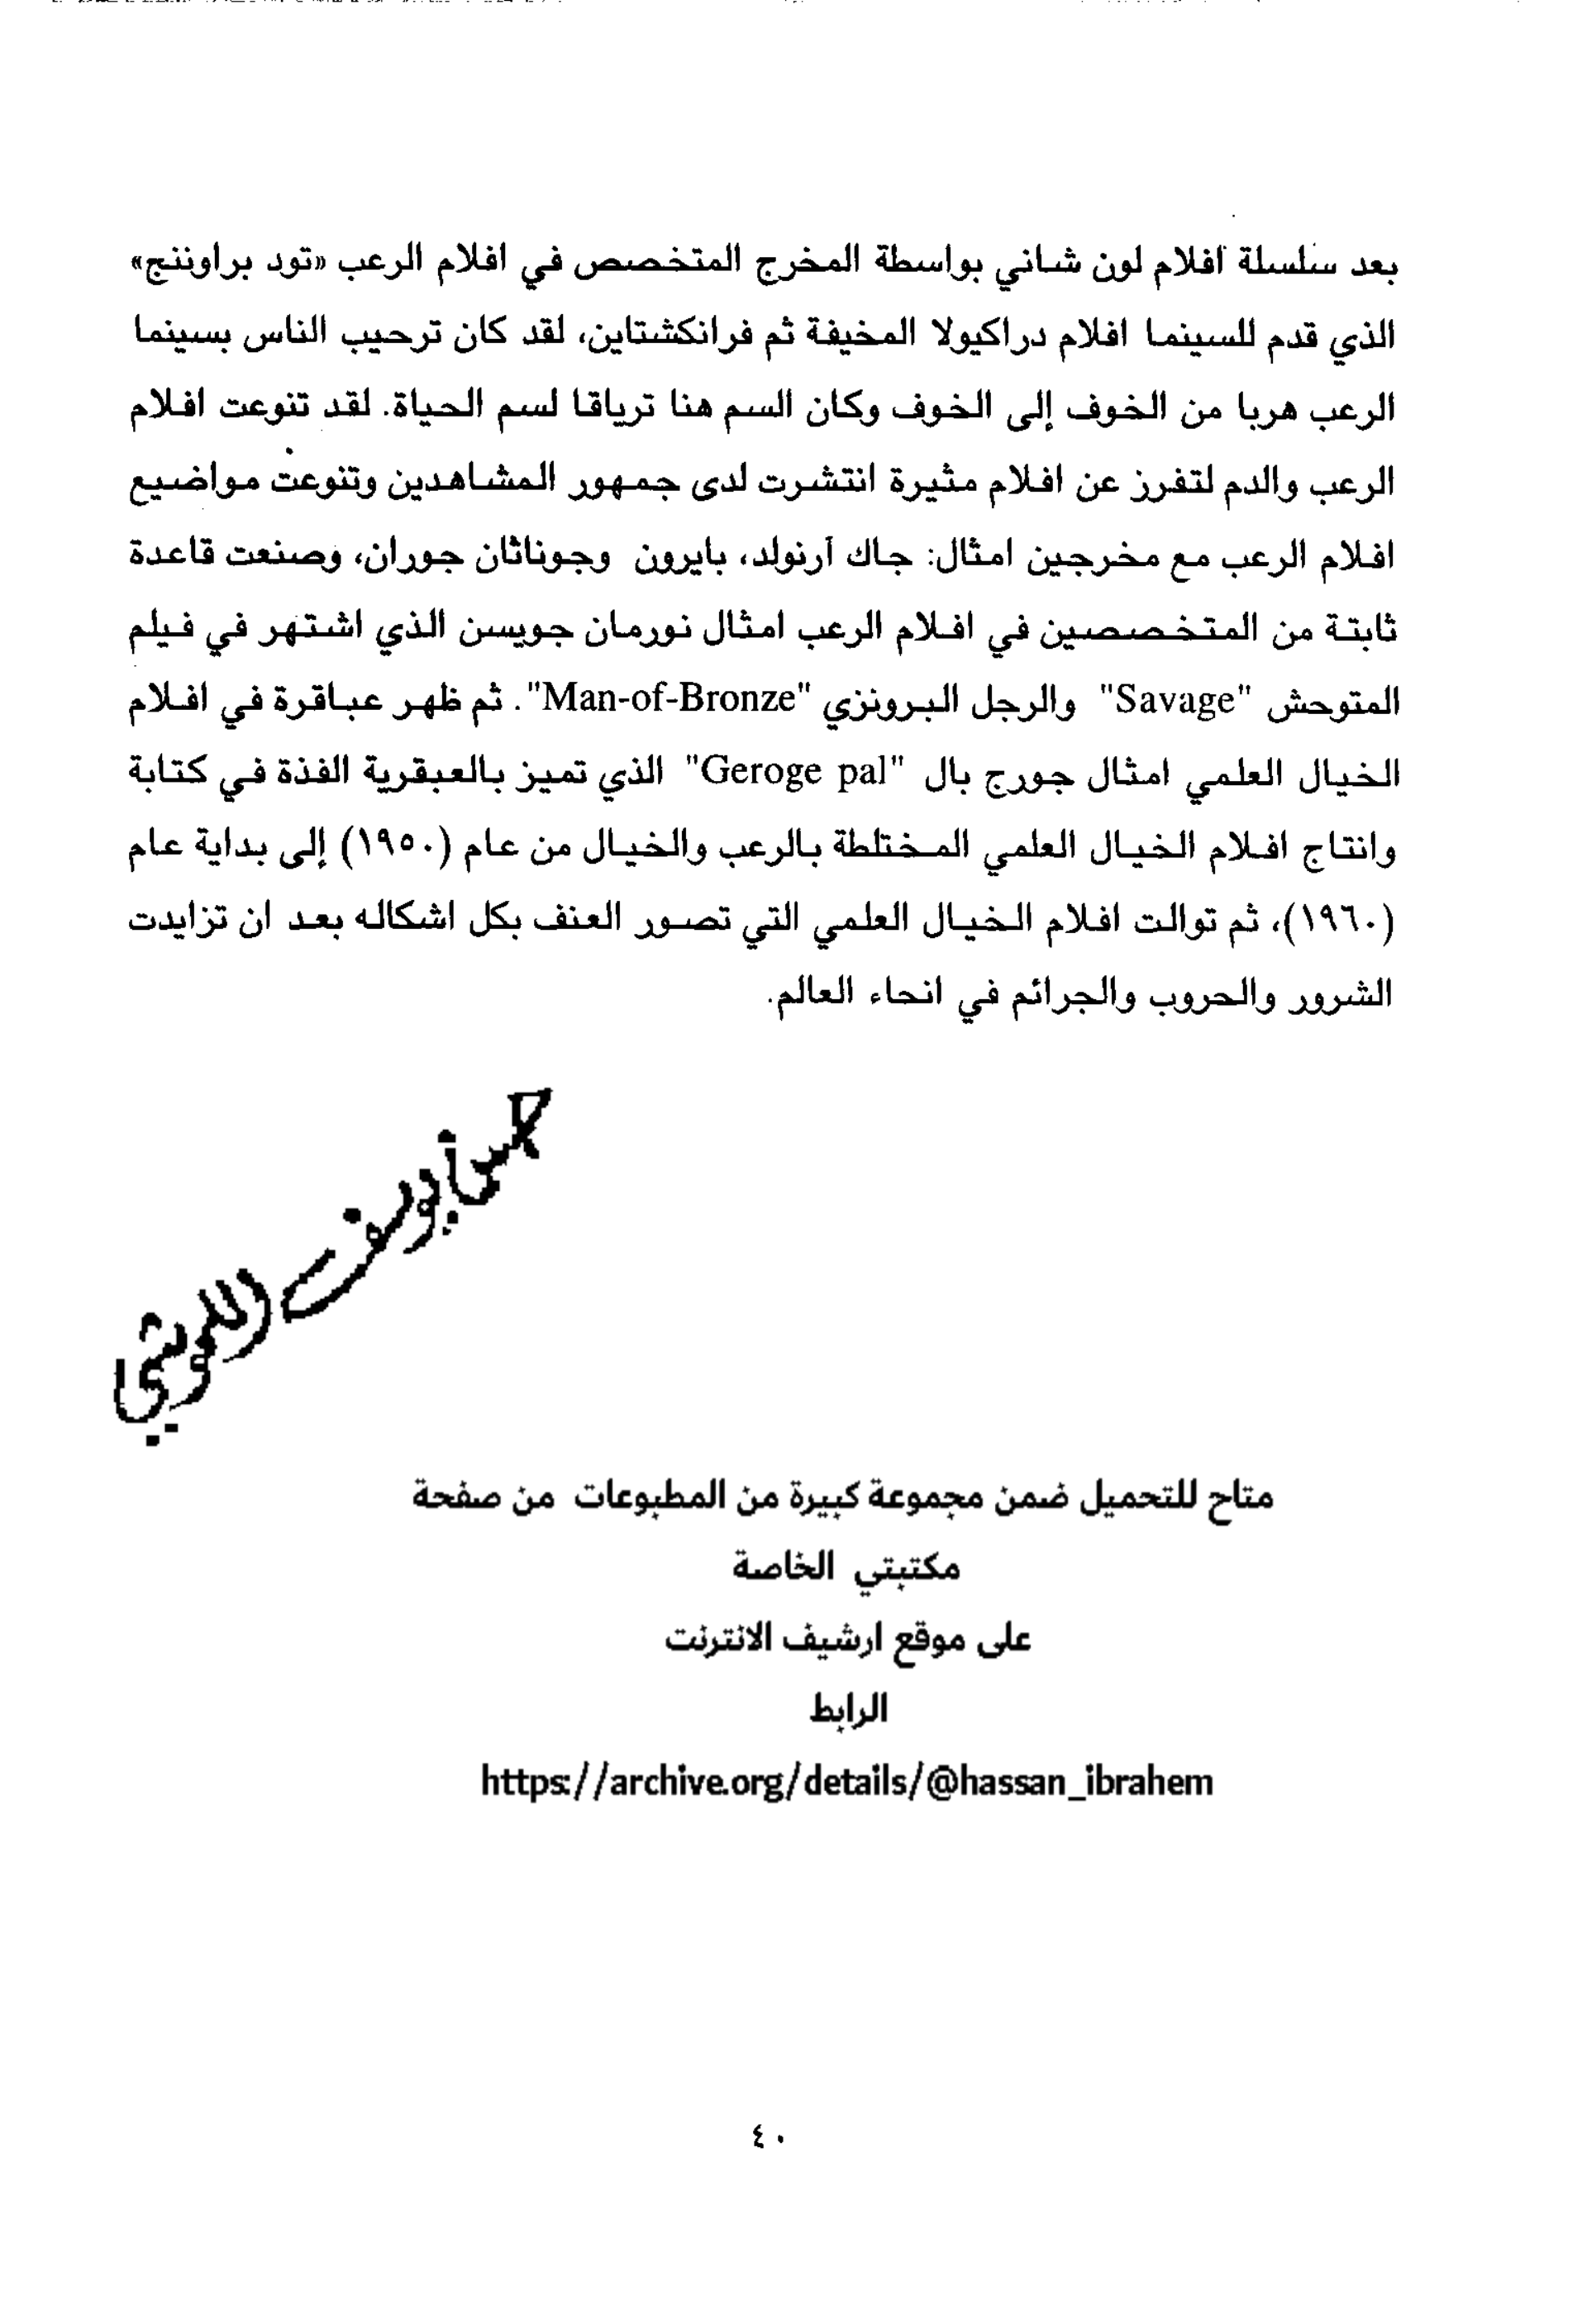 بعد سلسلة افلام لون شاني بواسطة المخرج المتخصص في افلام الرعب «تود براوننج»
الذي قدم للسينما افلام دراكيولا المخيفة ثم فرانكشتاين، لقد كان ترحيب الناس بسينما
الرعب هربا من الخوف إلى الخوف وكان السم هنا ترياقا لسم الحياة. لقد تنوعت افلام
الرعب والدم لتفرز عن افلام مثيرة انتشرت لدى جمهور المشاهدين وتنوعت مواضيع
افلام الرعب مع مخرجين امثال: جاك آرنولد، بايرون وجوناثان جوران، وصنعت قاعدة
ثابتة من المتخصصين في افلام الرعب امثال نورمان جويسن الذي اشتهر في فيلم
المتوحش "Savage" والرجل البرونزي "Man-of-Bronze". ثم ظهر عباقرة في افلام
الخيال العلمي امثال جورج بال "Geroge pal" الذي تميز بالعبقرية الفذة في كتابة
وانتاج افلام الخيال العلمي المختلطة بالرعب والخيال من عام (١٩٥٠) إلى بداية عام
(١٩٦٠)، ثم توالت افلام الخيال العلمي التي تصور العنف بكل اشكاله بعد ان تزايدت
الشرور والحروب والجرائم في انحاء العالم.
متاح للتحميل ضمن مجموعة كبيرة من المطبوعات من صفحة
مكتبتي الخاصة
على موقع ارشيف الانترنت
الرابط
https://archive.org/details/@hassan_ibrahem
٤٠